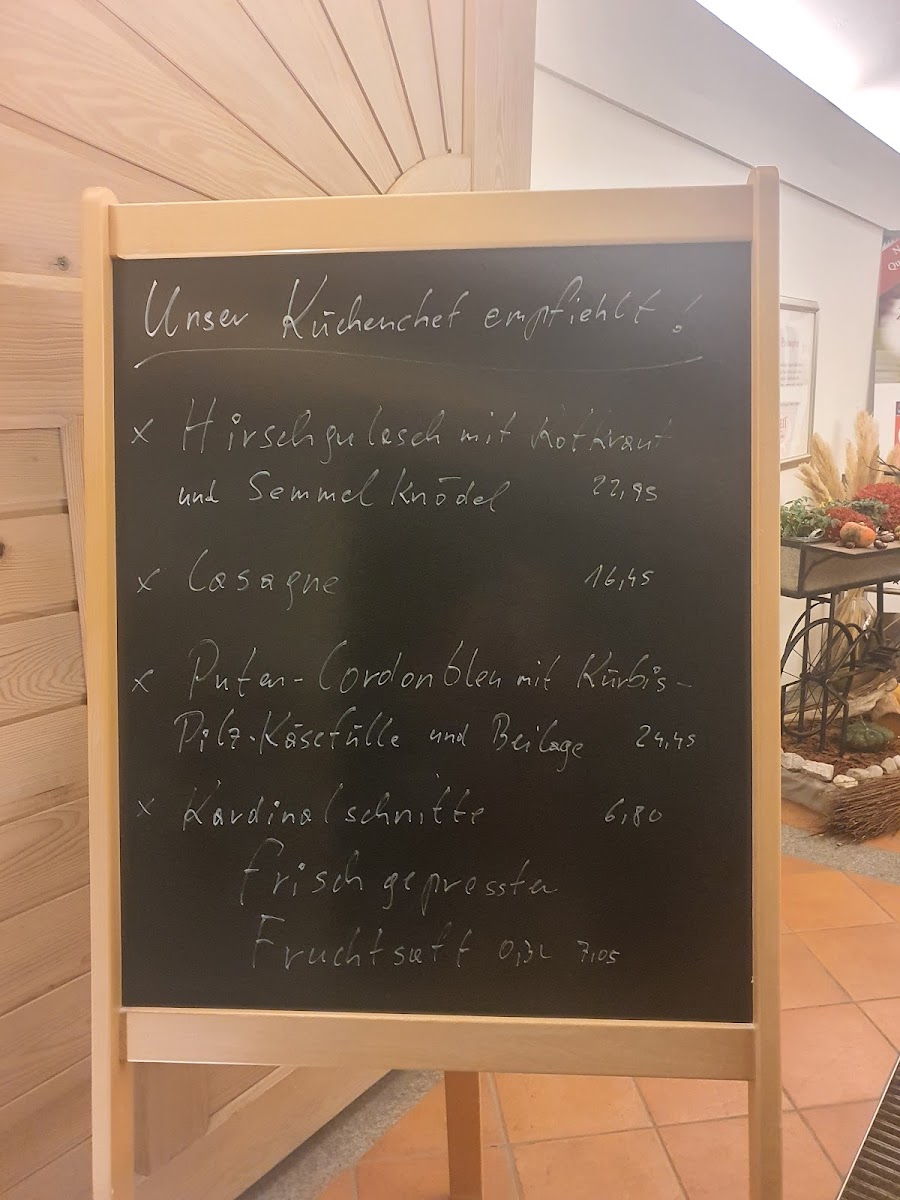 Unser Küchenchef empfiehlt!
x Hirschgulasch mit Rotkraut
und Semmelknödel 22,95
x Lasagne 16,45
x Puten-Cordonbleu mit Kürbis-
Pilz-Käsefülle und Beilage 24,45
x Kardinalschnitte 6,80
Frisch gepresster
Fruchtsaft 0,3L 7,05